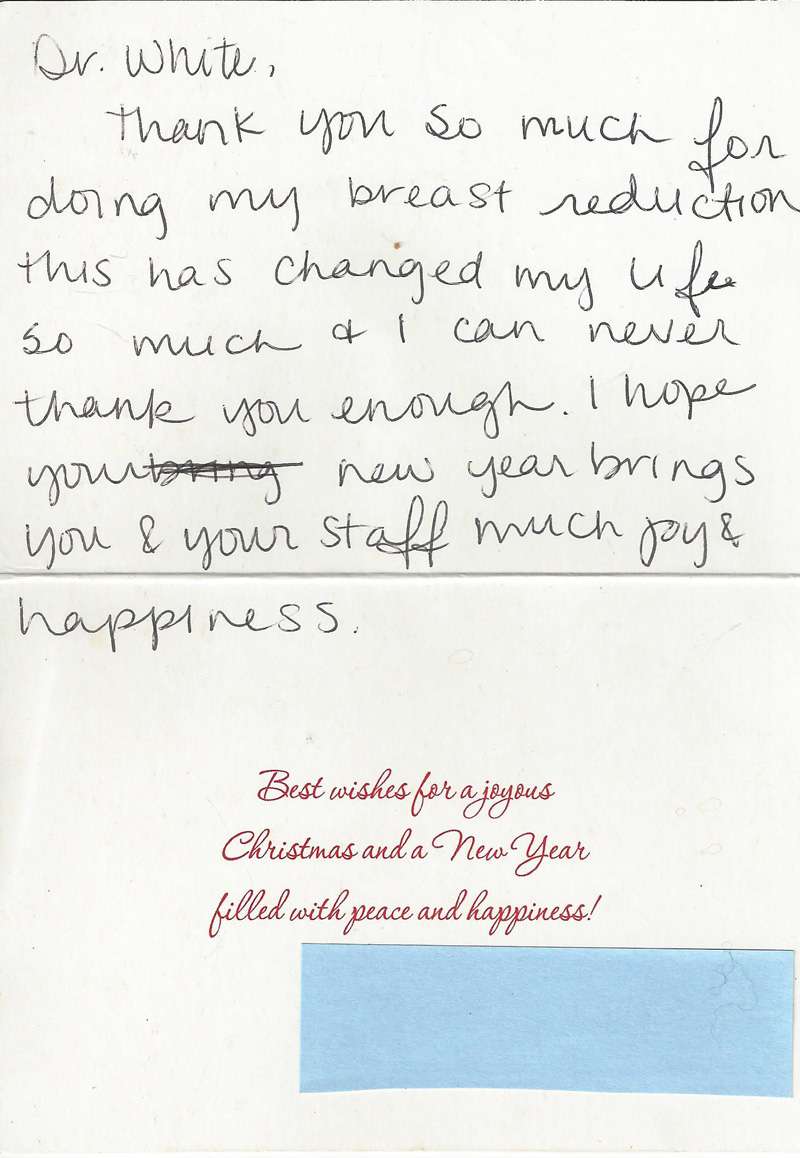 Dr. White,
thank you so much for
doing my breast reduction
this has changed my life
so much & I can never
thank you enough. I hope
your bring new year brings
you & your staff much joy &
happiness.
Best wishes for a joyous
Christmas and a New Year
filled with peace and happiness!